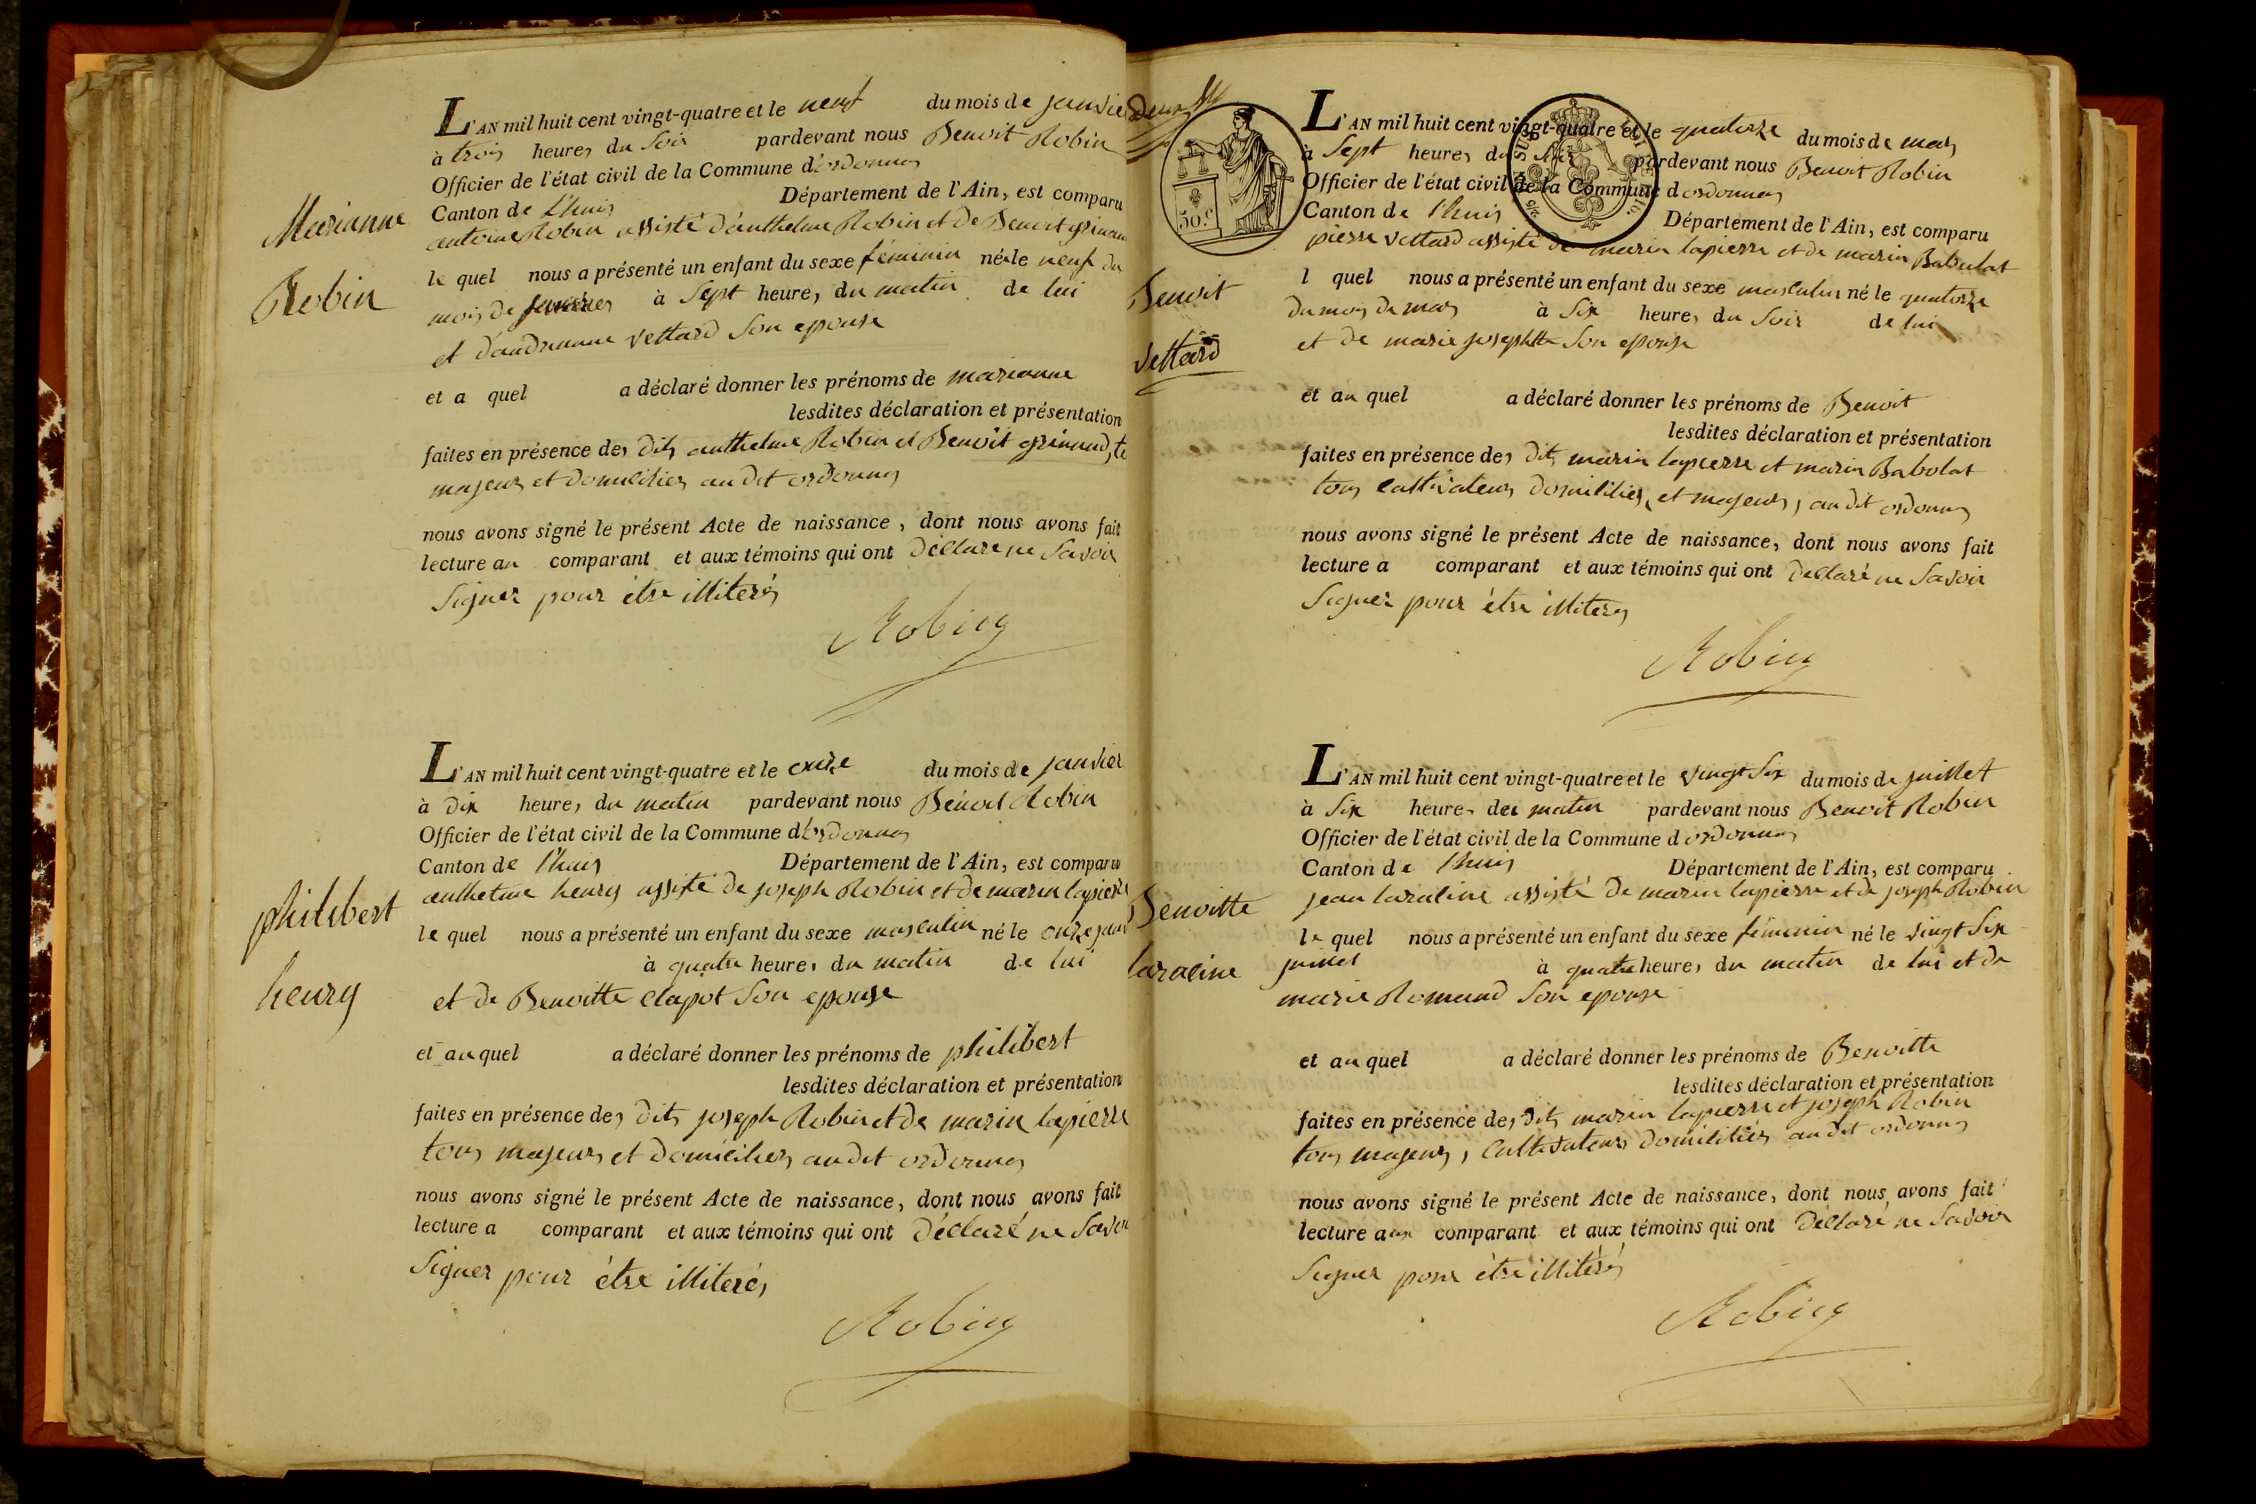 Marianne
Robin
L'AN mil huit cent vingt-quatre et le neuf du mois de janvier
à trois heures du soir pardevant nous Benoit Robin
Officier de l'état civil de la Commune d'ordonnas
Canton de l'huis Département de l'Ain, est comparu
antoine Robin assisté d'anthelme Robin et de Benoit
le quel nous a présenté un enfant du sexe féminin né le neuf du
mois de janvier à sept heures du matin de lui
et d'andrienne vettard son epouse
et a quel a déclaré donner les prénoms de marianne
lesdites déclaration et présentation
faites en présence des dits anthelme Robin et Benoit
majeurs et domiciliés au dit ordonnas
nous avons signé le présent Acte de naissance, dont nous avons fait
lecture au comparant et aux témoins qui ont déclaré ne savoir
signer pour être illiterés
Robin
philibert
henry
L'AN mil huit cent vingt-quatre et le onze du mois de janvier
à dix heures du matin pardevant nous Benoit Robin
Officier de l'état civil de la Commune d'ordonnas
Canton de l'huis Département de l'Ain, est comparu
anthelme henry assisté de joseph Robin et de marin lapierre
le quel nous a présenté un enfant du sexe masculin né le onze janv
à quatre heures du matin de lui
et de Benoitte clapot son epouse
et au quel a déclaré donner les prénoms de philibert
lesdites déclaration et présentation
faites en présence des dits joseph Robin et de marin lapierre
tous majeurs et domiciliés au dit ordonnas
nous avons signé le présent Acte de naissance, dont nous avons fait
lecture a comparant et aux témoins qui ont déclaré ne savoir
signer pour être illiterés
Robin
deux
50.c
Benoit
vettard
L'AN mil huit cent vingt-quatre et le quatorze du mois de mars
à sept heures du soir pardevant nous Benoit Robin
Officier de l'état civil de la Commune d ordonnas
Canton de l'huis Département de l'Ain, est comparu
pierre vettard assisté de marin lapierre et de marin Babolat
l quel nous a présenté un enfant du sexe masculin né le quatorze
du mois de mars à six heures du soir de lui
et de marie josephtte son epouse
et au quel a déclaré donner les prénoms de Benoit
lesdites déclaration et présentation
faites en présence des dits marin lapierre et marin Babolat
tous cultivateurs domiciliés, et majeurs, au dit ordonnas
nous avons signé le présent Acte de naissance, dont nous avons fait
lecture a comparant et aux témoins qui ont déclaré ne savoir
signer pour être illiterés
Robin
Benoitte
laraline
L'AN mil huit cent vingt-quatre et le vingt six du mois de juillet
à six heures du matin pardevant nous Benoit Robin
Officier de l'état civil de la Commune d ordonnas
Canton de l'huis Département de l'Ain, est comparu
jean laraline assisté de marin lapierre et de joseph Robin
le quel nous a présenté un enfant du sexe féminin né le vingt six
juillet à quatre heures du matin de lui et de
marie Romand son epouse
et au quel a déclaré donner les prénoms de Benoitte
lesdites déclaration et présentation
faites en présence des dits marin lapierre et joseph Robin
tous majeurs, cultivateurs domiciliés au dit ordonnas
nous avons signé le présent Acte de naissance, dont nous avons fait
lecture aux comparant et aux témoins qui ont déclaré ne savoir
signer pour être illitérés
Robin